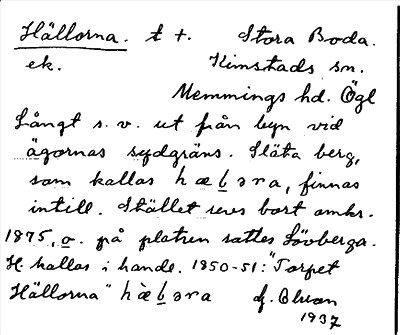 Hällorna. t t. Stora Boda.
ek. Kimstads sn.
Memmings hd. Ögl
Långt s. v. ut från byn vid
ägornas sydgräns. Släta berg,
som kallas hæḇəra, finnas
intill. Stället revs bort omkr.
1875, o. på platsen sattes Lövberga.
H. kallas i hande. 1850-51: "Torpet
Hällorna" hæ̀ḇəra
1937